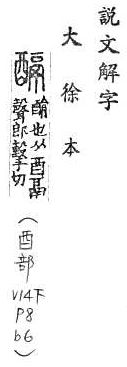 說文解字
大徐本
䤙
也从酉鬲
聲郎擊切
(酉部
V14下
P8
b6)